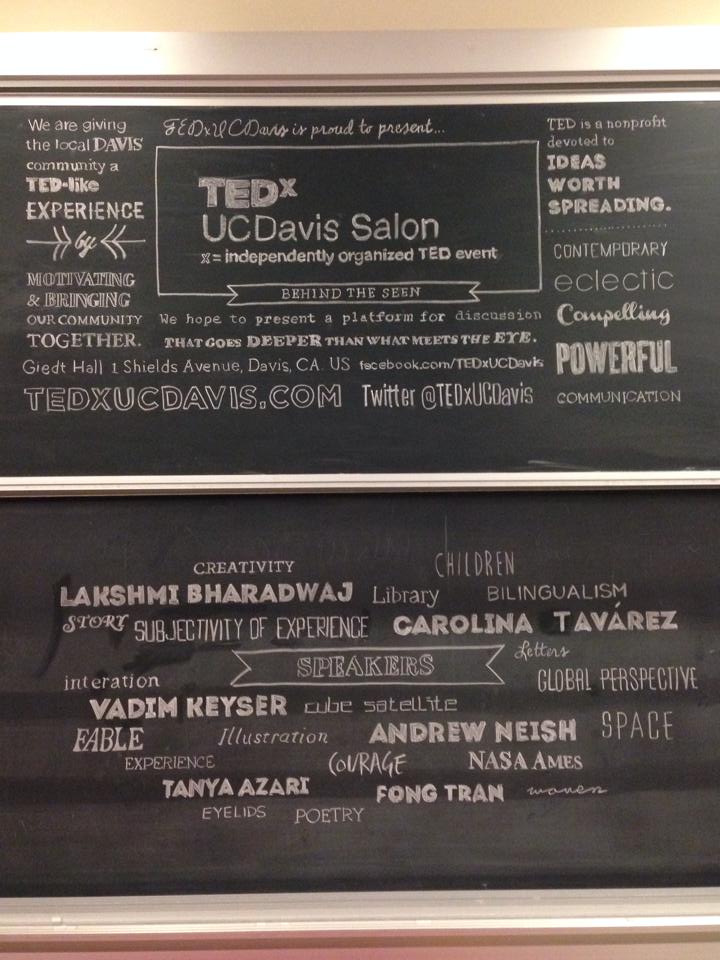 We are giving
the local DAVIS
community a
TED-like
EXPERIENCE
by
MOTIVATING
& BRINGING
OUR COMMUNITY
TOGETHER.
TEDxUCDavis is proud to present...
TEDx
UCDavis Salon
x = independently organized TED event
BEHIND THE SEEN
We hope to present a platform for discussion
THAT GOES DEEPER THAN WHAT MEETS THE EYE.
TED is a nonprofit
devoted to
IDEAS
WORTH
SPREADING.
CONTEMPORARY
eclectic
Compelling
POWERFUL
COMMUNICATION
Giedt Hall 1 Shields Avenue, Davis, CA. US facebook.com/TEDxUCDavis
TEDXUCDAVIS.COM Twitter @TEDxUCDavis
CREATIVITY CHILDREN
LAKSHMI BHARADWAJ Library BILINGUALISM
STORY SUBJECTIVITY OF EXPERIENCE CAROLINA TAVÁREZ
SPEAKERS Letters
interation GLOBAL PERSPECTIVE
VADIM KEYSER cube satellite
FABLE Illustration ANDREW NEISH SPACE
EXPERIENCE COURAGE NASA AMES
TANYA AZARI FONG TRAN women
EYELIDS POETRY